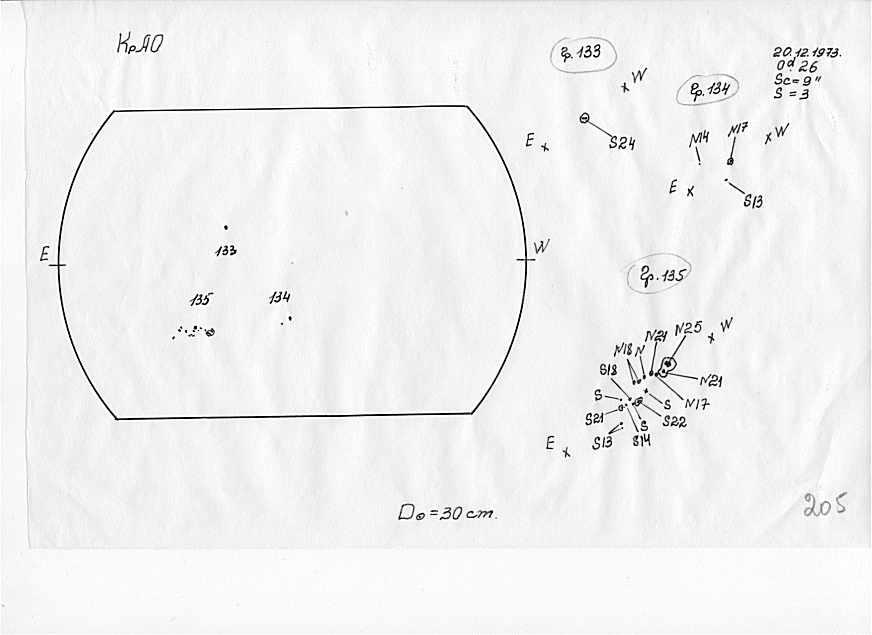 КрАО
Гр. 133
W
E
S24
20.12.1973.
0d.26
Sc=9"
S=3
Гр. 134
N14
N17
W
E
S13
133
E
W
135
134
Гр. 135
N25
W
N21
N18
N
S18
N21
S
N17
S
S21
S22
S
S13
S14
E
D⊙=30 cm.
205